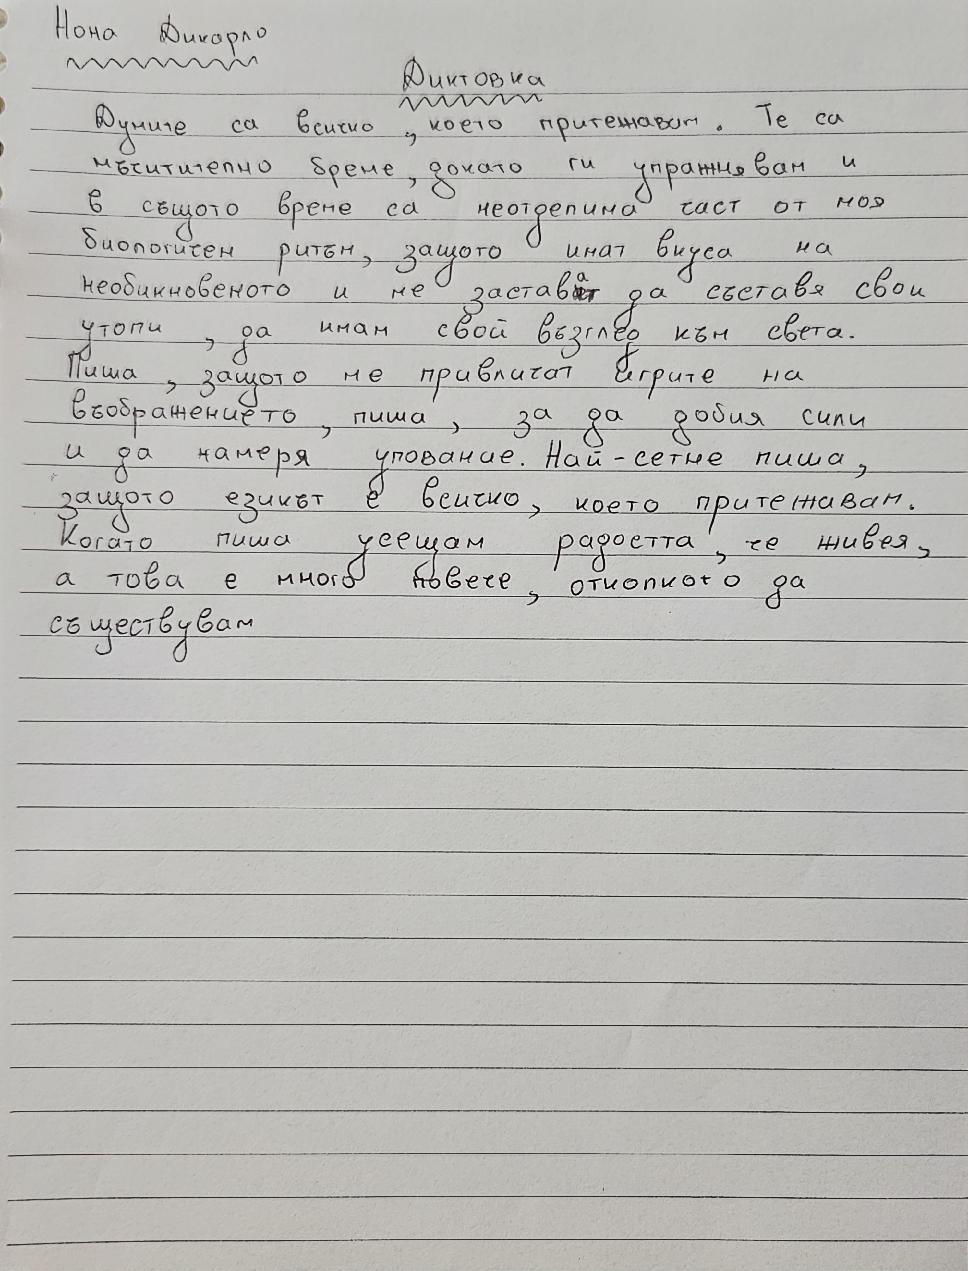 Нона Дикарло
Диктовка
Думите са всичко, което притежавам. Те са
мъчително бреме, докато ги упражнявам и
в същото време са неотделима част от моя
биологичен ритъм, защото имат вкуса на
необикновеното и ме застават да съставя свои
утопи, да имам свой възглед към света.
Пиша, защото ме привличат игрите на
въображението, пиша, за да добия сили
и да намеря упование. Най-сетне пиша,
защото езикът е всичко, което притежавам.
Когато пиша усещам радостта, че живея,
а това е много повече, отколкото да
съществувам